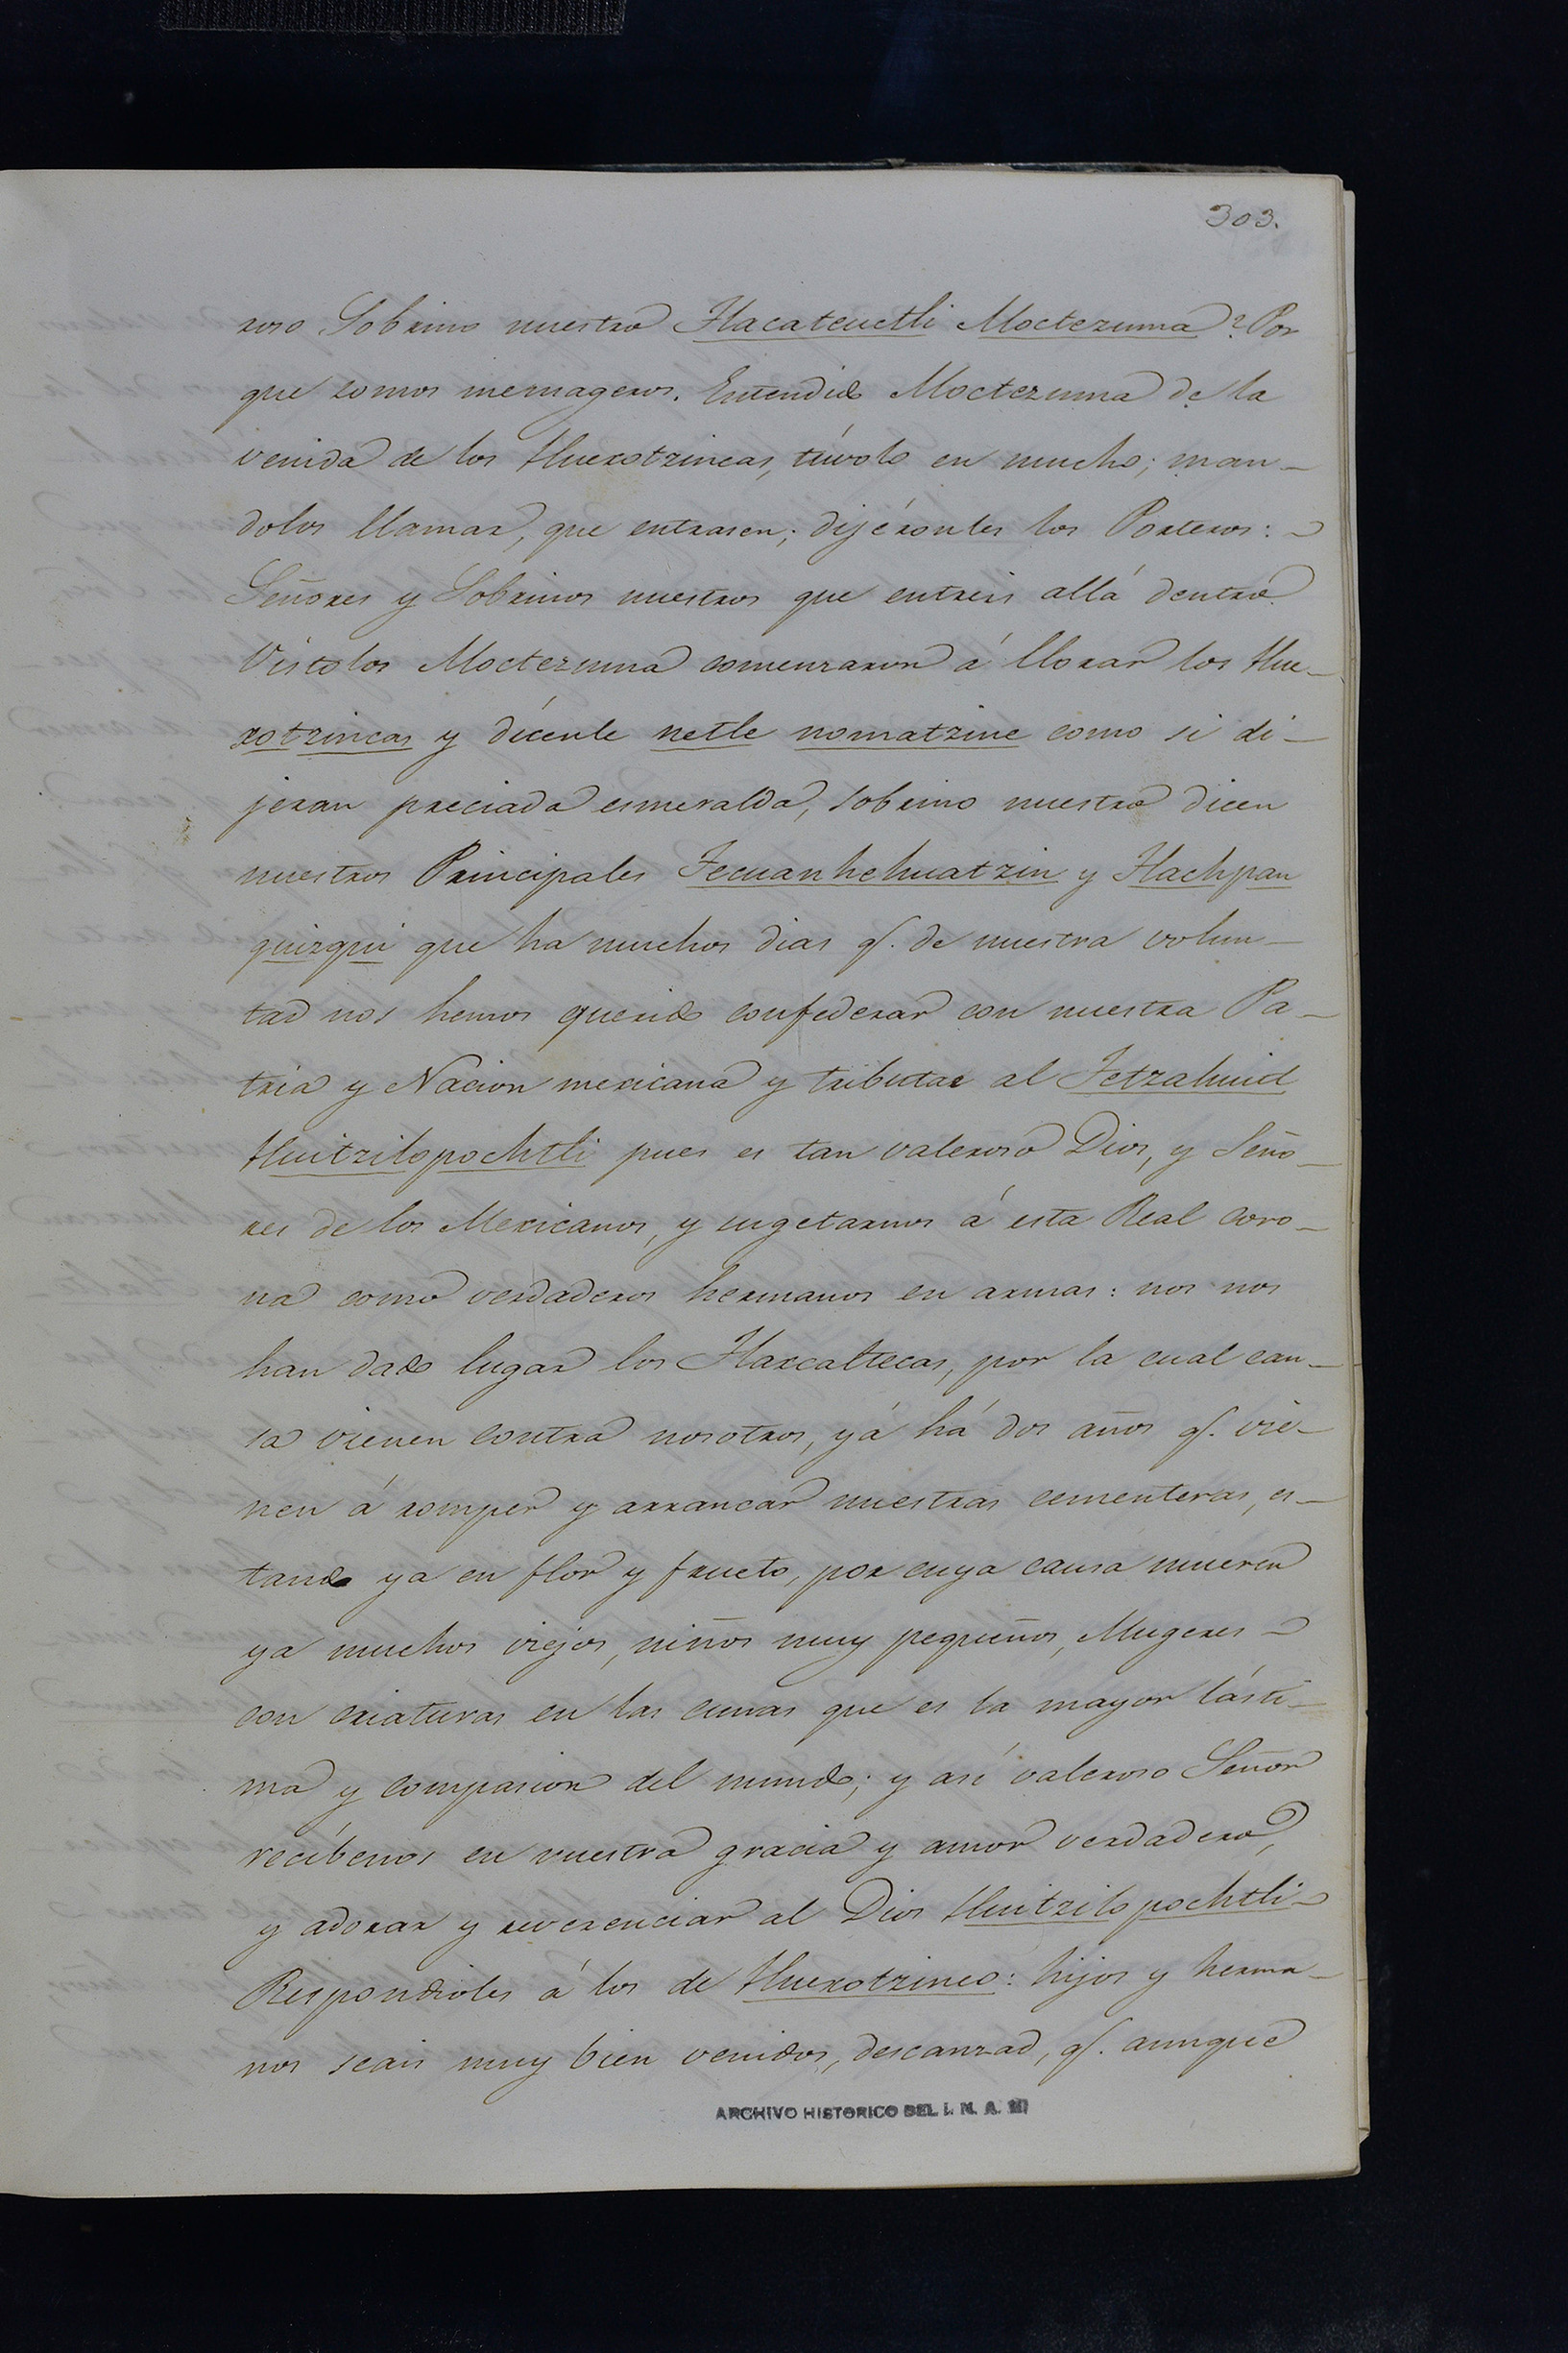 303.
roso Sobrino nuestro Tlacateuctli Moctezuma? Por
que somos mensageros. Entendido Moctezuma de la
venida de los Huexotzincas, túvolo en mucho; man-
dolos llamar, que entrasen; dijéronles los Porteros:
Señores y Sobrinos nuestros que entreis allá dentro.
Vistolos Moctezuma comenzaron á llorar los Hue-
xotzincas y dícenle netle nomatzine como si di-
jeran preciada esmeralda, sobrino nuestro dicen
nuestros Principales Tecuanhehuatzin y Tlachpan
quizqui que ha muchos dias q. de nuestra volun-
tad nos hemos querido confederar con nuestra Pa-
tria y Nacion mexicana y tributar al Tetzahuid
Huitzilopochtli pues es tan valeroso Dios, y Seño-
res de los Mexicanos, y sugetarnos á esta Real coro-
na como verdaderos hermanos en armas: nos nos
han dado lugar los Tlaxcaltecas, por la cual cau-
sa vienen contra nosotros, yá há dos años q. vie-
nen á romper y arrancar nuestras cementeras, es-
tando ya en flor y fructo, por cuya causa mueren
ya muchos viejos, niños muy pequeños, Mugeres
con criaturas en las cunas que es la mayor lásti-
ma y compasion del mundo; y asi valeroso Señor
recíbenos en vuestra gracia y amor verdadero,
y adorar y reverenciar al Dios Huitzilopochtli
Respondioles á los de Huexotzinco: hijos y herma-
nos seais muy bien venidos, descanzad, q. aunque
ARCHIVO HISTORICO DEL I. N. A. H